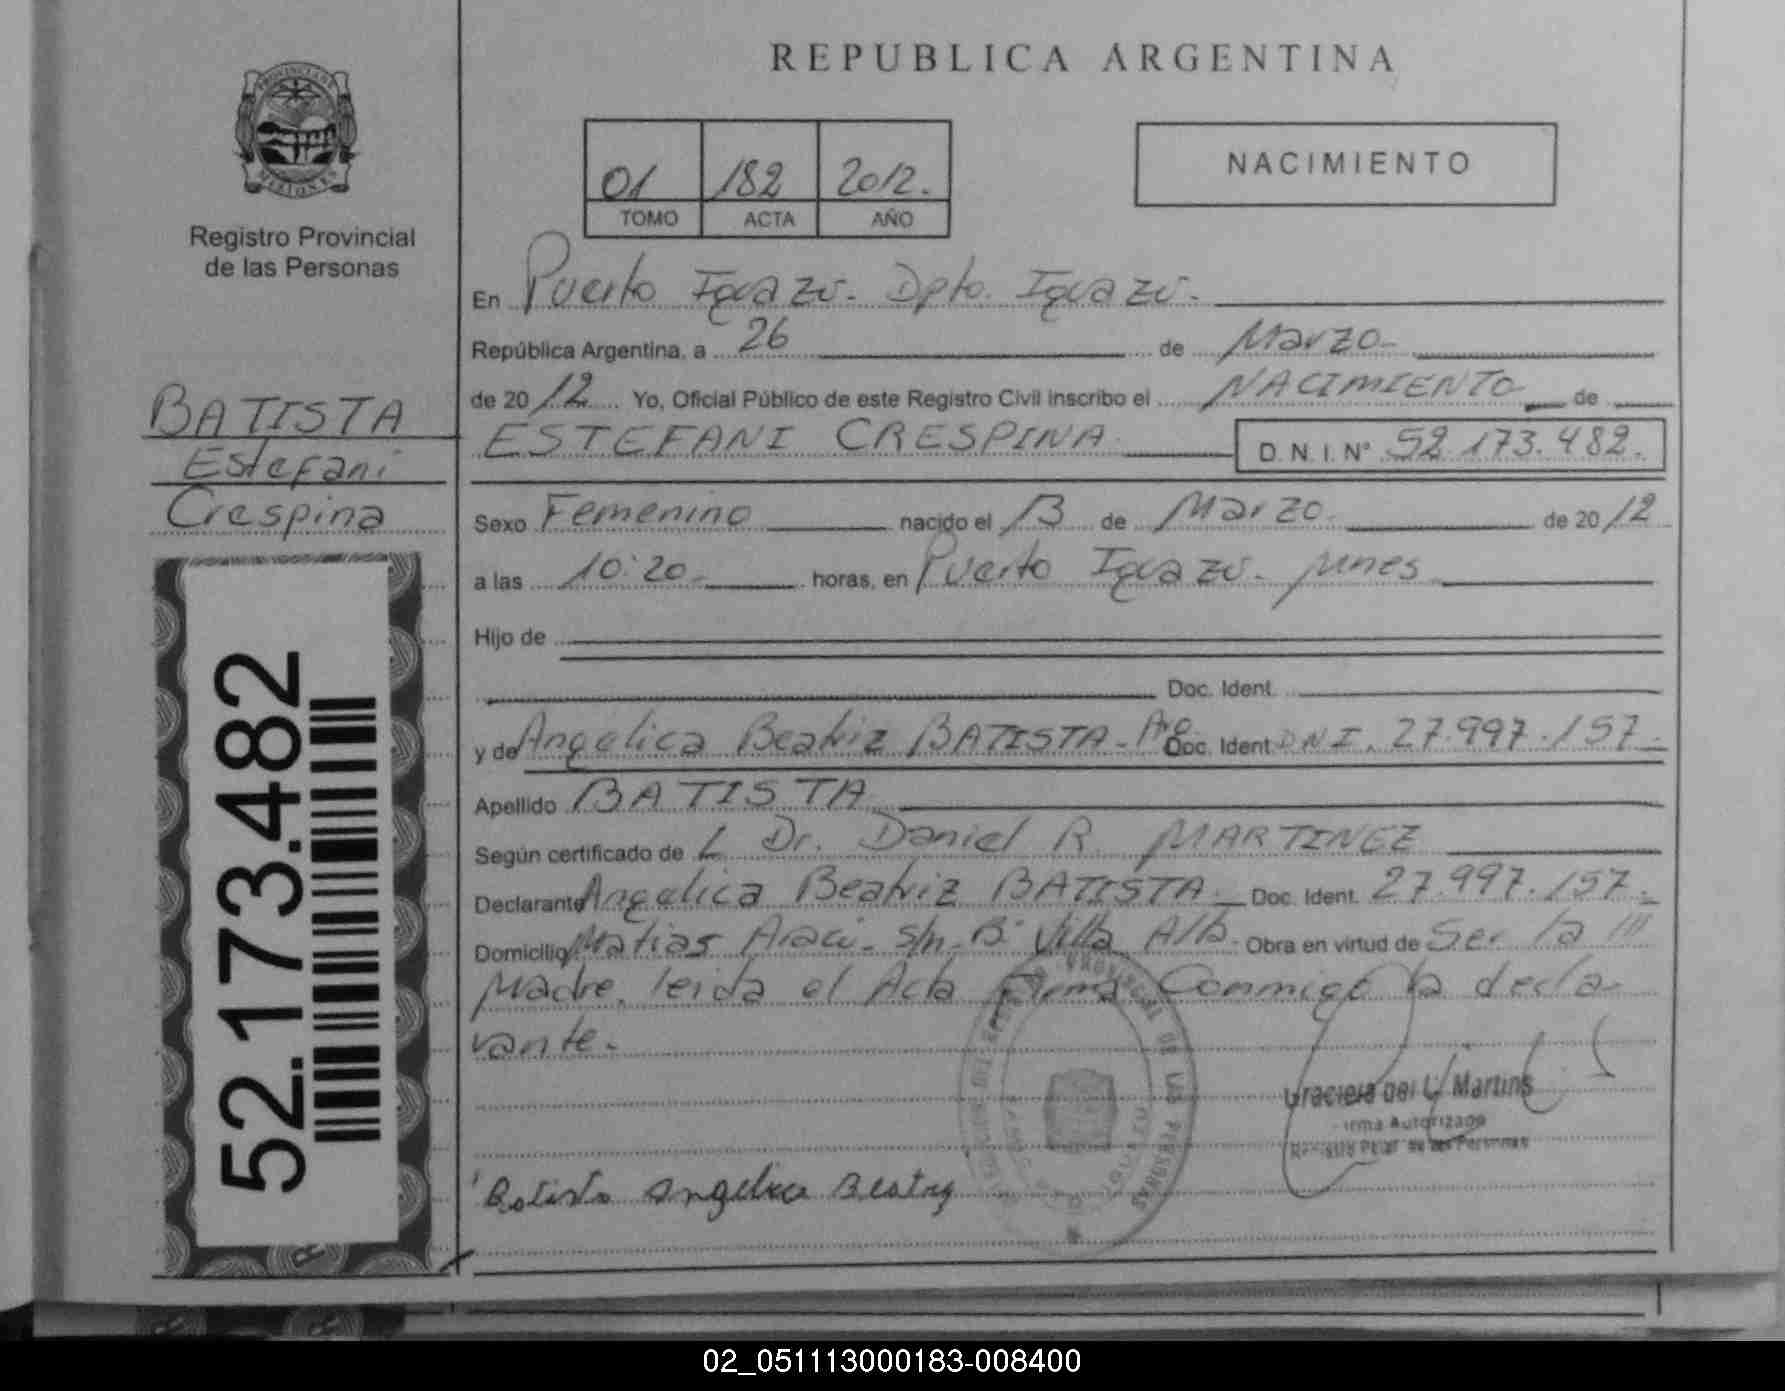 REPUBLICA ARGENTINA
PROVINCIA DE MISIONES
Registro Provincial
de las Personas
01 182 2012.
TOMO ACTA AÑO
NACIMIENTO
En Puerto Iguazú. Dpto. Iguazú.
República Argentina, a 26 de Marzo
de 2012 Yo, Oficial Público de este Registro Civil inscribo el NACIMIENTO de
ESTEFANI CRESPINA D. N. I. N° 52.173.482.
BATISTA
Estefani
Crespina
Sexo Femenino nacido el 13 de Marzo de 2012
a las 10:20 horas, en Puerto Iguazú. Mnes
Hijo de
Doc. Ident.
y de Angelica Beatriz BATISTA - Arg. Doc. Ident. DNI. 27.997.157.
Apellido BATISTA
Según certificado de L Dr. Daniel R. MARTINEZ
Declarante Angelica Beatriz BATISTA Doc. Ident. 27.997.157.
Domicilio Matias s/n B° Villa Alta Obra en virtud de Ser la
Madre leida el Acta Firma Conmigo la decla-
rante.
Graciela del Martins
Firma Autorizada
Batista Angelica Beatriz
52.173.482
02_051113000183-008400